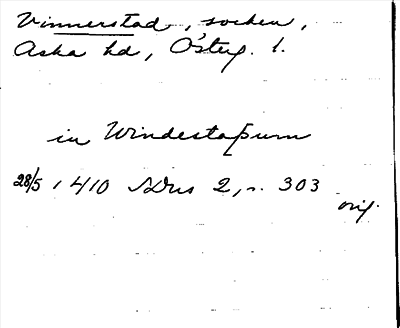 Vinnerstad, socken,
Aska hd, Österg. l.
in Windestaþum
28/5 1410 SDns 2, s. 303
orig.